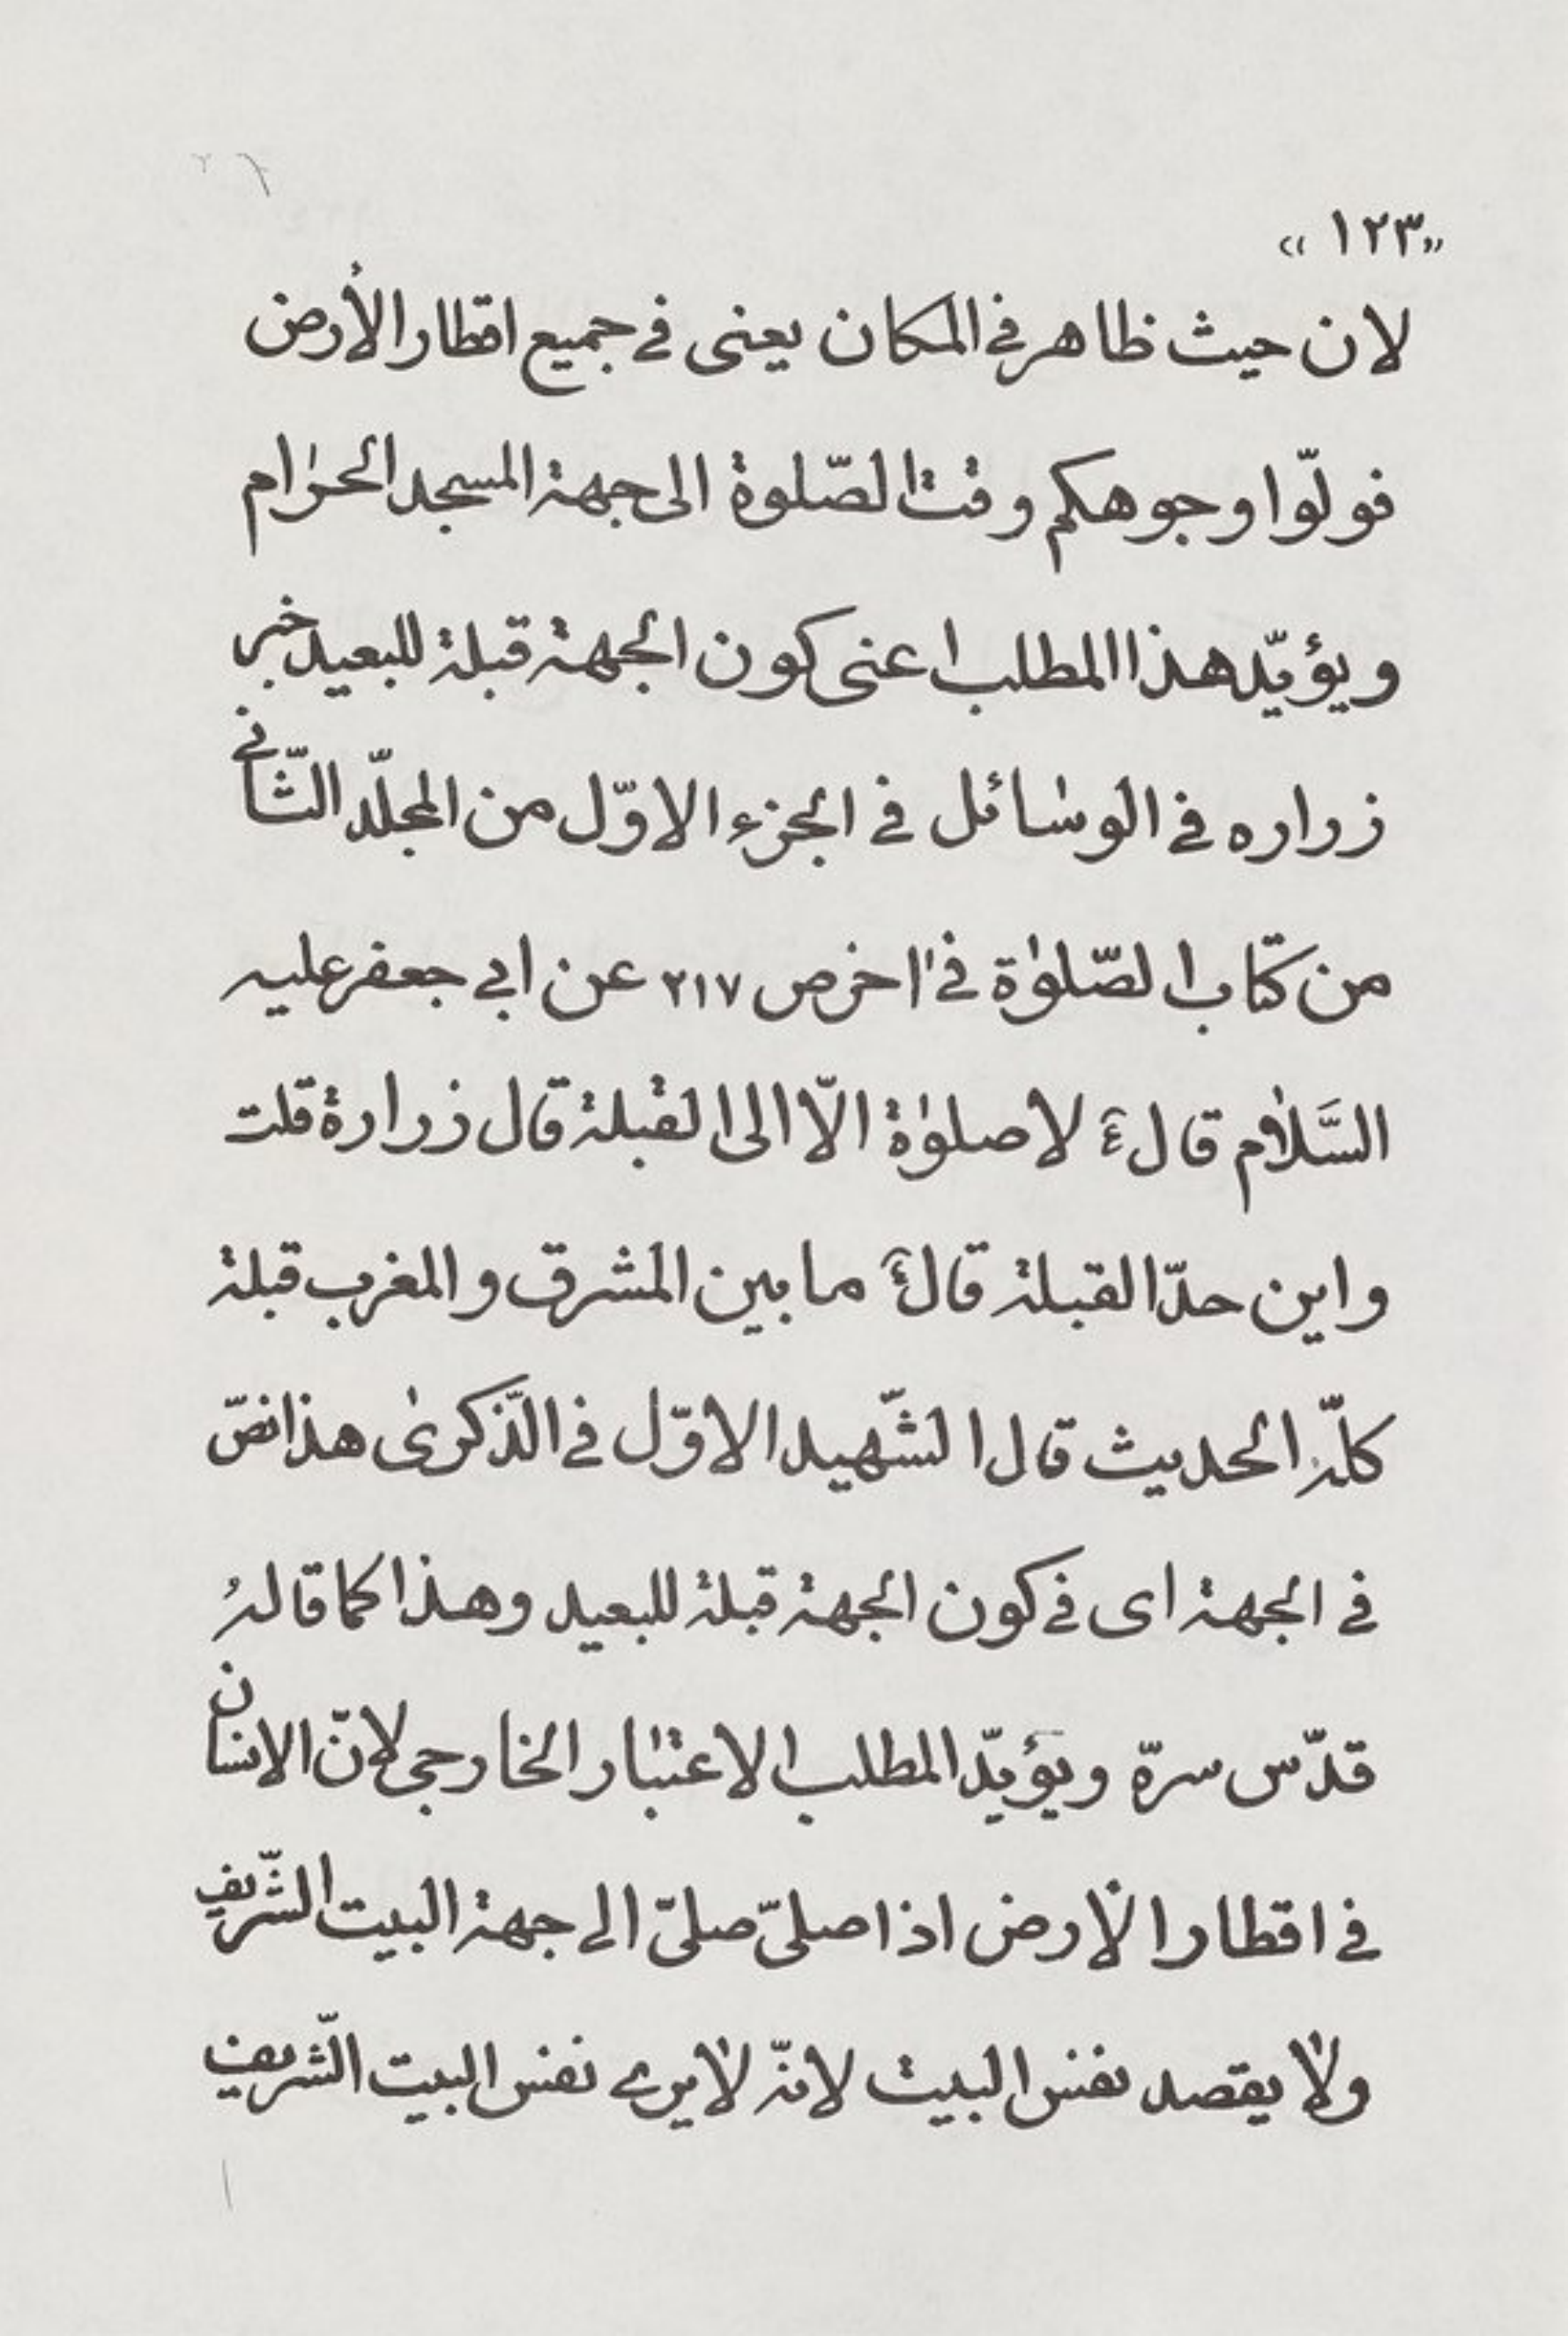 «١٢٣»
لان حيث ظاهر في المكان يعنى في جميع اقطار الأرض
فولّوا وجوهكم وقت الصّلوة الى جهة المسجد الحرام
ويؤيّد هذا المطلب اعنى كون الجهة قبلة للبعيد خبر
زراره في الوسائل في الجزء الاوّل من المجلّد الثّاني
من كتاب الصّلوٰة في اخر ص ٢١٧ عن ابي جعفر عليه
السَّلام قال ع لا صلوٰة الّا الى القبلة قال زرارة قلت
واين حدّ القبلة قال ع ما بين المشرق والمغرب قبلة
كلّه الحديث قال الشّهيد الاوّل في الذّكرىٰ هذا نصّ
في الجهة اى في كون الجهة قبلة للبعيد وهذا كما قاله
قدّس سرّه ويؤيّد المطلب الاعتبار الخارجى لانّ الانسان
في اقطار الأرض اذا صلىّ صلىّ الى جهة البيت الشّريف
ولا يقصد نفس البيت لانّه لا يرى نفس البيت الشّريف